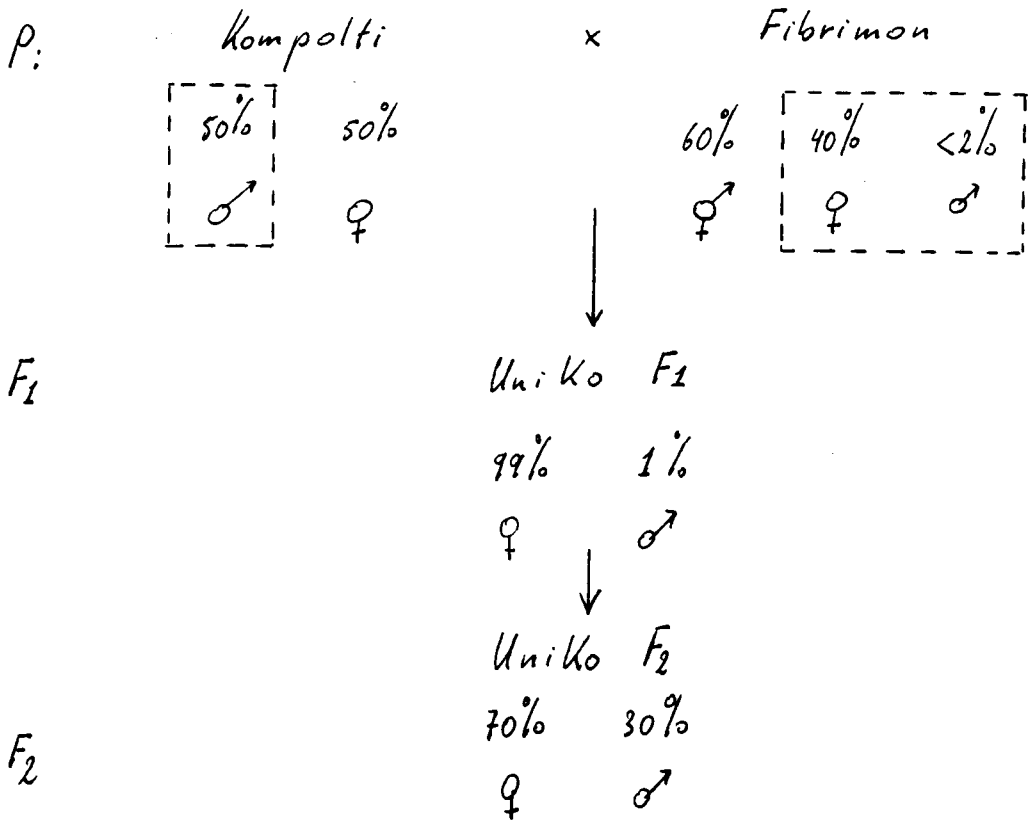 P: Kompolti x Fibrimon
50% 50% 60% 40% <2%
♂ ♀ ⚥ ♀ ♂
F1 UniKo F1
99% 1%
♀ ♂
UniKo F2
70% 30%
F2
♀ ♂